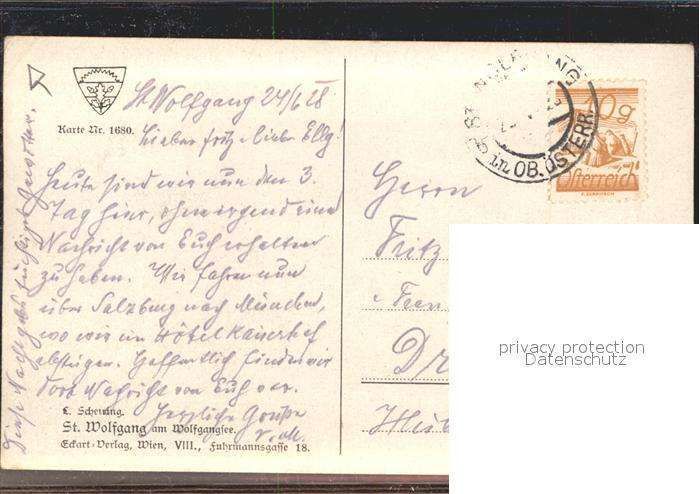 St. Wolfgang 24/6 28
Karte Nr. 1680.
Lieber Fritz u. liebe Elly!
Heute sind wir nun den 3.
Tag hier, ohne irgend eine
Nachricht von Euch erhalten
zu haben. Wir fahren nun
über Salzburg nach München,
wo wir im Hotel Kaiserhof
absteigen. Hoffentlich finden wir
dort Nachricht von Euch vor.
Herzliche Grüße
L. Scheuing.
St. Wolfgang am Wolfgangsee.
Eckart-Verlag, Wien, VIII., Fuhrmannsgasse 18.
Diese Nacht
in OB. ÖSTERR.
10g
Österreich
Herrn
Fritz
Dr
privacy protection
Datenschutz